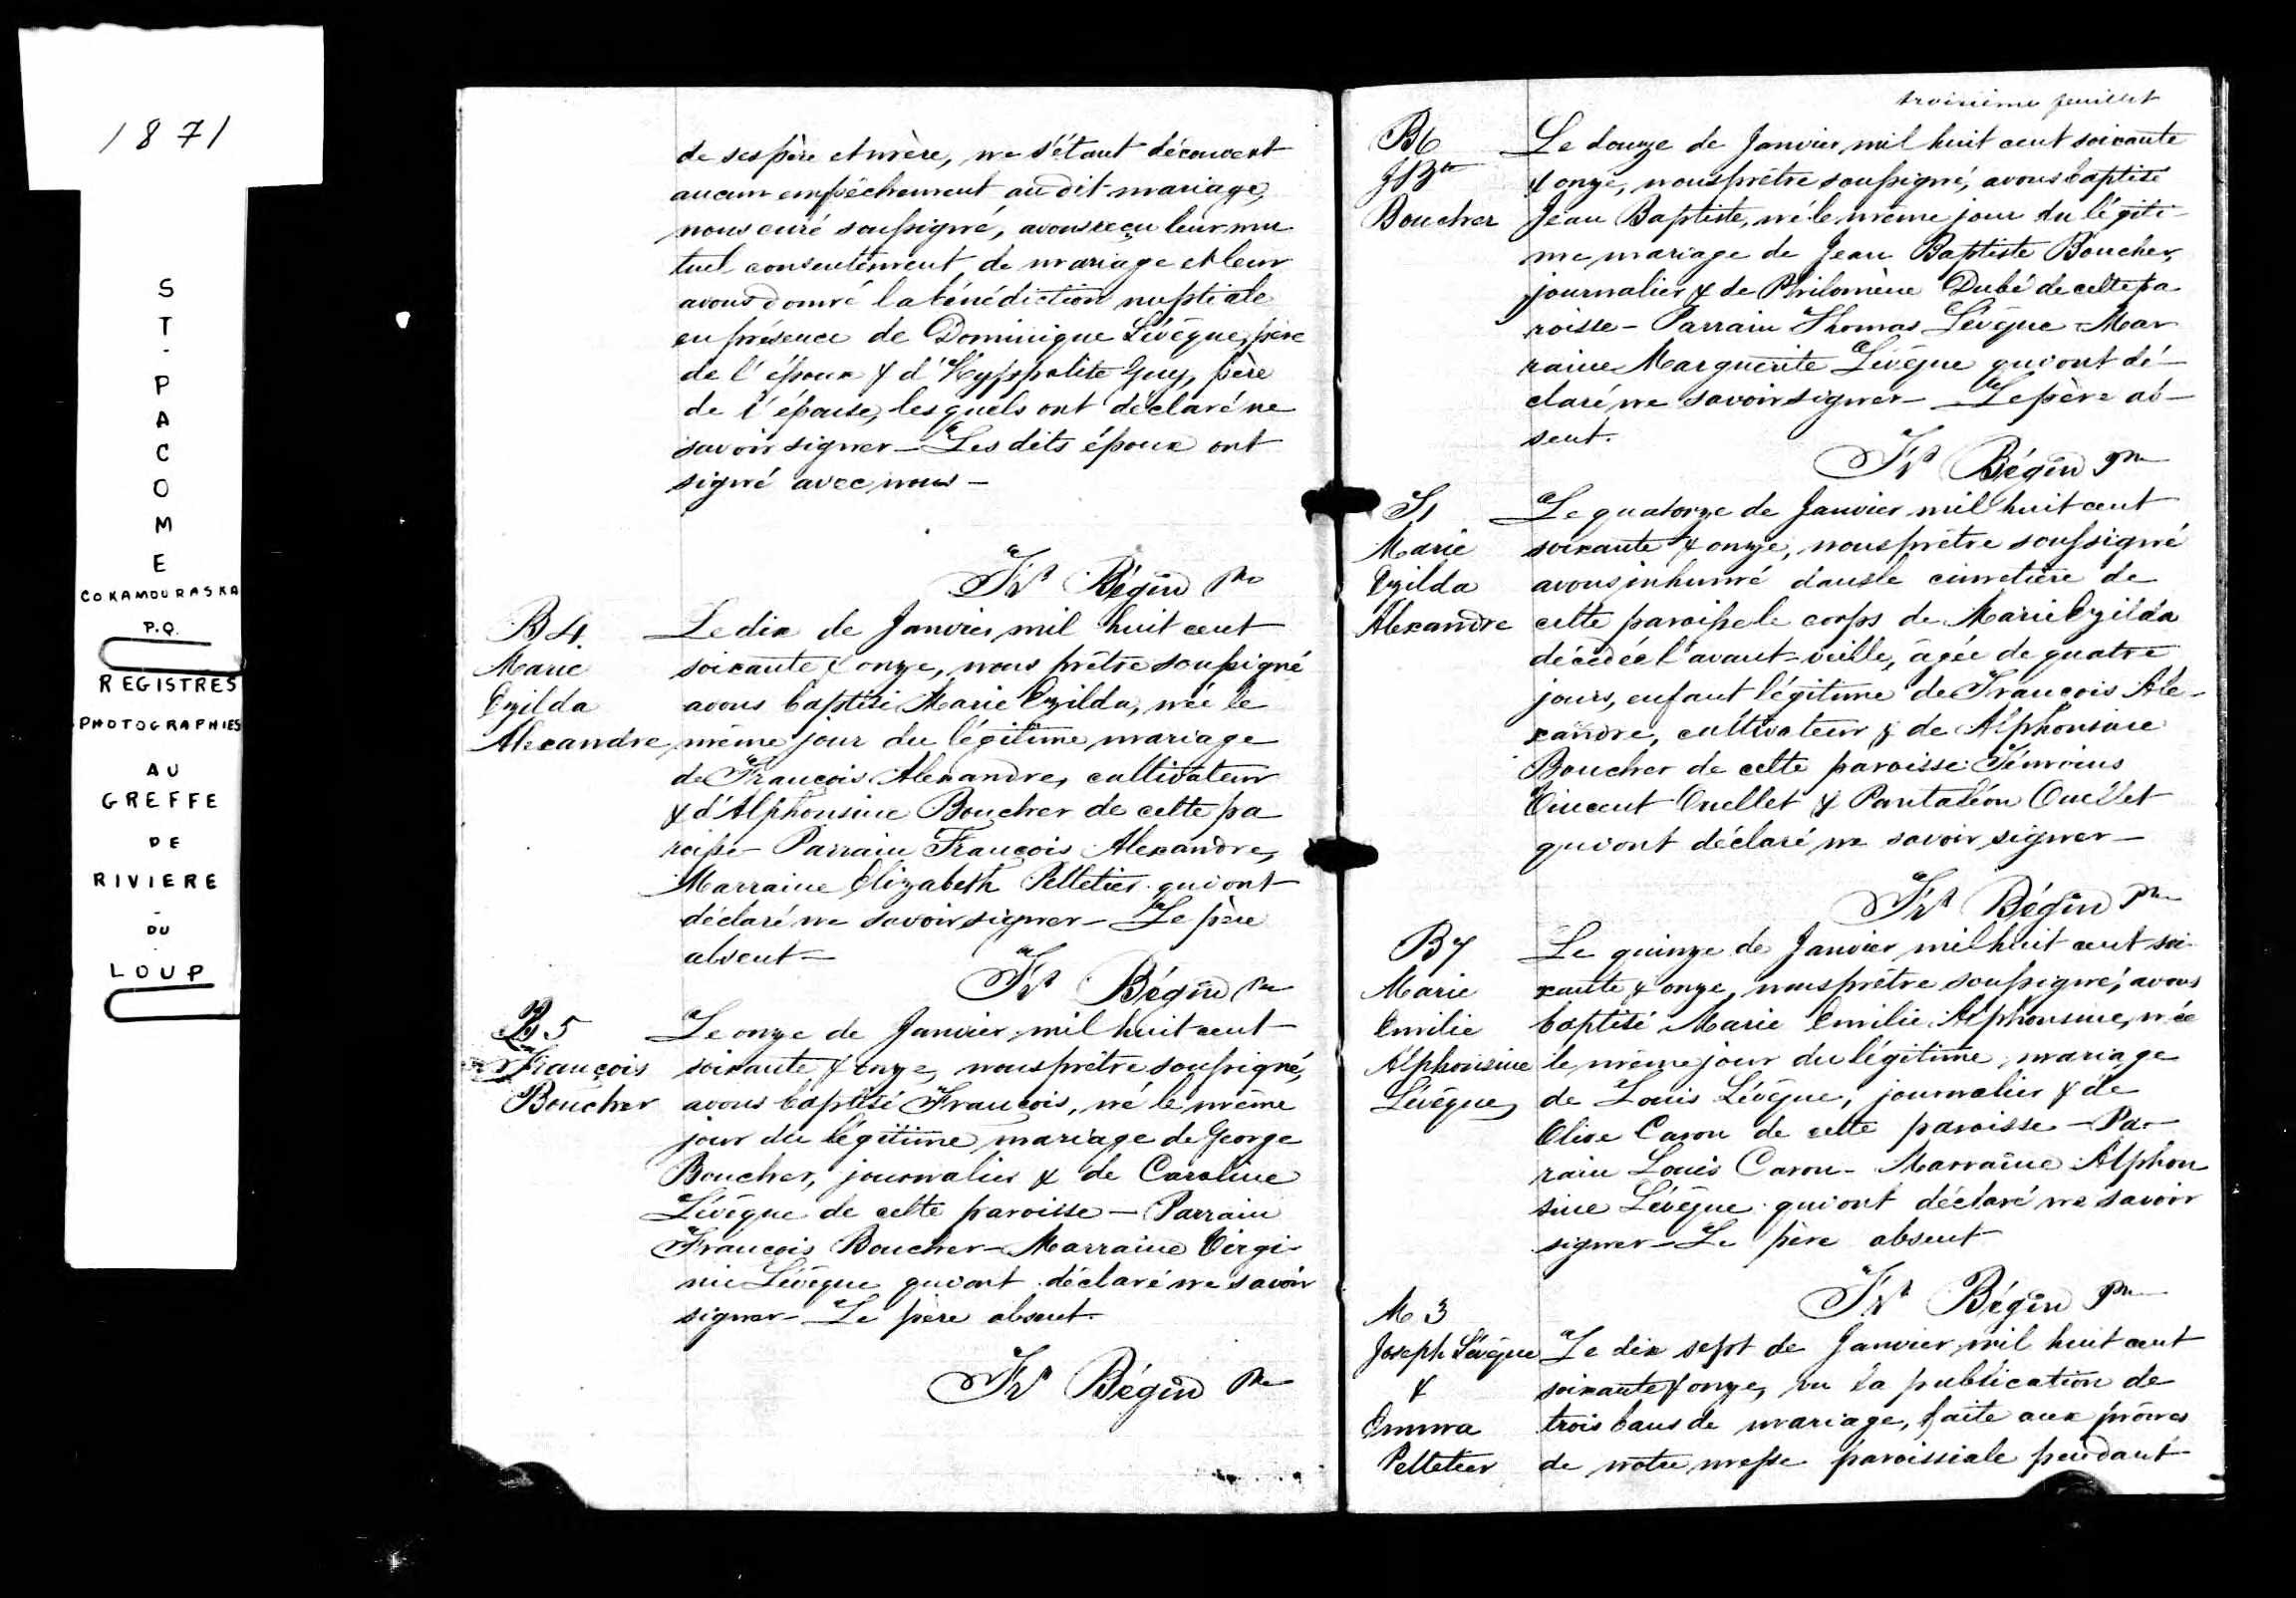 1871
ST. PACOME
CO KAMOURASKA
P.Q.
REGISTRES
PHOTOGRAPHIES
AU
GREFFE
DE
RIVIERE
-
DU
LOUP
de ses père et mère, ne s'étant découvert
aucun empêchement au dit mariage,
nous curé soussigné, avons reçu leur mu
tuel consentement de mariage et leur
avons donné la bénédiction nuptiale
en présence de Dominique Lévêque, père
de l'époux & d'Hyppolite Guy, père
de l'épouse, lesquels ont déclaré ne
savoir signer - Les dits époux ont
signé avec nous -
Frs Bégin Ptre
B4.
Marie
Exilda
Alexandre
Le dix de Janvier mil huit cent
soixante & onze, nous prêtre soussigné
avons baptisé Marie Exilda, née le
même jour du légitime mariage
de François Alexandre, cultivateur
& d'Alphonsine Boucher de cette pa
roisse - Parrain François Alexandre,
Marraine Elizabeth Pelletier qui ont
déclaré ne savoir signer - Le père
absent -
Frs Bégin Ptre
B5
François
Boucher
Le onze de Janvier mil huit cent
soixante & onze, nous prêtre soussigné,
avons baptisé François, né le même
jour du légitime mariage de George
Boucher, journalier & de Caroline
Lévêque de cette paroisse - Parrain
François Boucher - Marraine Virgi-
nie Lévêque qui ont déclaré ne savoir
signer - Le père absent.
Frs Bégin Ptre
troisième feuillet
B6
J Bte
Boucher
Le douze de Janvier mil huit cent soixante
& onze, nous prêtre soussigné, avons baptisé
Jean Baptiste, né le même jour du légiti-
me mariage de Jean Baptiste Boucher,
journalier & de Philomène Dubé de cette pa
roisse - Parrain Thomas Lévêque - Mar
raine Marguerite Lévêque qui ont dé-
claré ne savoir signer - Le père ab-
sent.
Frs Bégin Ptre
S1
Marie
Exilda
Alexandre
Le quatorze de Janvier mil huit cent
soixante & onze, nous prêtre soussigné
avons inhumé dans le cimetière de
cette paroisse le corps de Marie Exilda
décédée l'avant-veille, âgée de quatre
jours, enfant légitime de François Ale-
xandre, cultivateur & de Alphonsine
Boucher de cette paroisse. Témoins
Vincent Ouellet & Pantaléon Ouellet
qui ont déclaré ne savoir signer -
Frs Bégin Ptre
B7
Marie
Emilie
Alphonsine
Lévêque
Le quinze de Janvier mil huit cent soi-
xante & onze, nous prêtre soussigné, avons
baptisé Marie Emilie Alphonsine, née
le même jour du légitime mariage
de Louis Lévêque, journalier & de
Olive Caron de cette paroisse - Par-
rain Louis Caron - Marraine Alphon
sine Lévêque qui ont déclaré ne savoir
signer - Le père absent
Frs Bégin Ptre
M3
Joseph Lévêque
&
Emma
Pelletier
Le dix sept de Janvier mil huit cent
soixante & onze, vu la publication de
trois bans de mariage, faite aux prônes
de notre messe paroissiale pendant